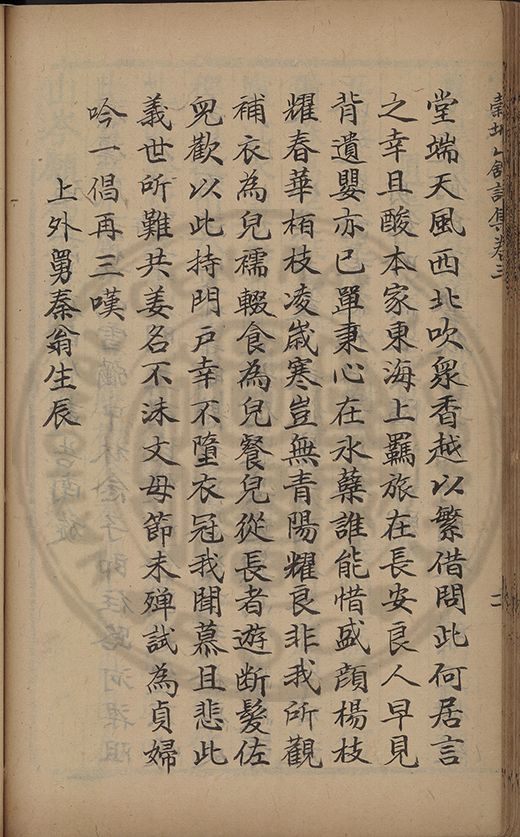 堂端天風西北吹衆香越以繁借問此何居言
之幸且酸本家東海上羈旅在長安良人早見
背遺嬰亦已單秉心在氷蘗誰能惜盛顔楊枝
耀春華栢枝凌嵗寒豈無青陽耀良非我所觀
補衣為兒襦輟食為兒餐兒從長者遊断髮佐
兒歡以此持門戸幸不墮衣冠我聞慕且悲此
義世所難共姜名不沬文母節未殫試為貞婦
吟一倡再三嘆
上外舅秦翁生辰
詩集卷三
二